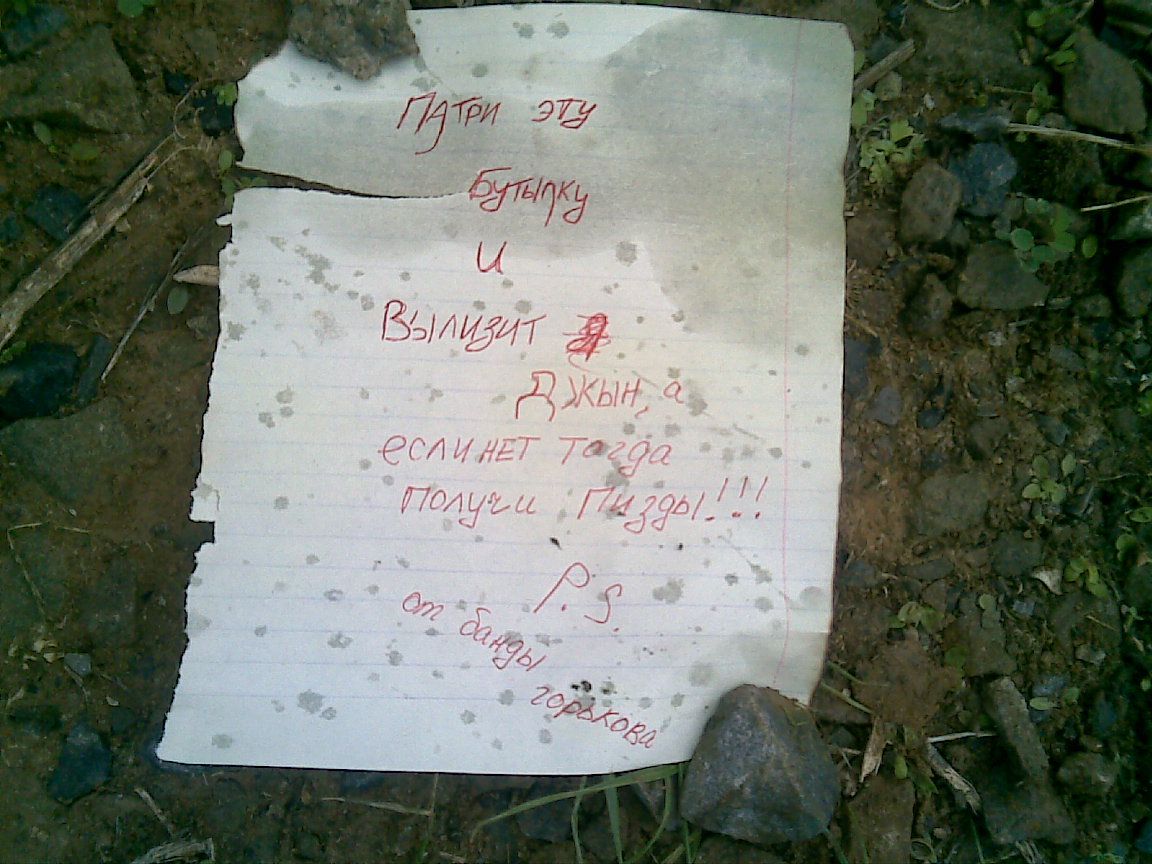 ПАТРИ ЭТУ
БУТЫЛКУ
И
ВЫЛИЗИТ
ДЖЫН, а
если нет тогда
получи пизды!!!
P.S.
от банды
горькова